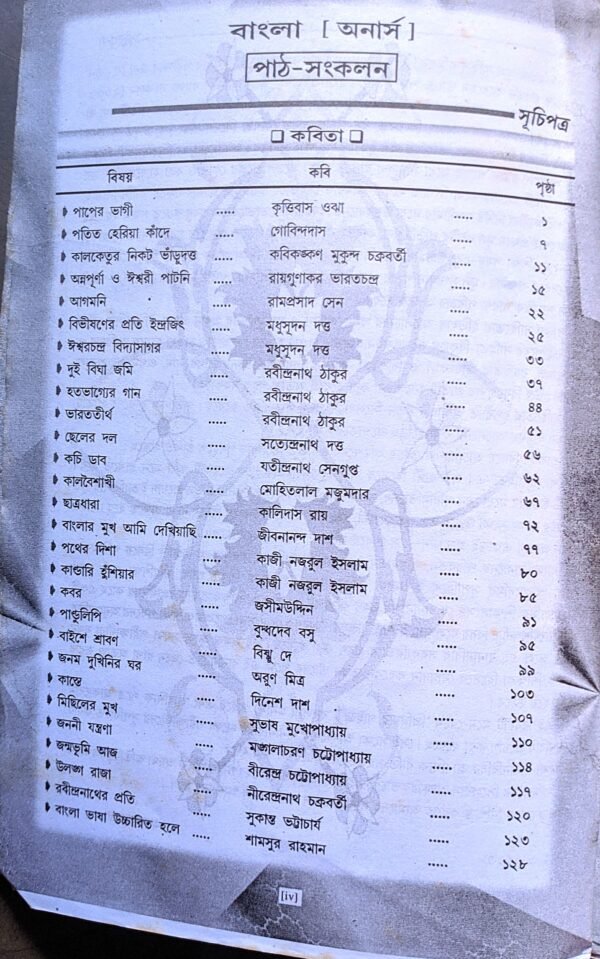 বাংলা [ অনার্স ]
পাঠ-সংকলন
সূচিপত্র
কবিতা
বিষয় কবি পৃষ্ঠা
পাপের ভাগী ..... কৃত্তিবাস ওঝা ..... ১
পতিত হেরিয়া কাঁদে ..... গোবিন্দদাস ..... ৭
কালকেতুর নিকট ভাঁড়ুদত্ত ..... কবিকঙ্কণ মুকুন্দ চক্রবর্তী ..... ১১
অন্নপূর্ণা ও ঈশ্বরী পাটনি ..... রায়গুণাকর ভারতচন্দ্র ..... ১৫
আগমনি ..... রামপ্রসাদ সেন ..... ২২
বিভীষণের প্রতি ইন্দ্রজিৎ ..... মধুসূদন দত্ত ..... ২৫
ঈশ্বরচন্দ্র বিদ্যাসাগর ..... মধুসূদন দত্ত ..... ৩৩
দুই বিঘা জমি ..... রবীন্দ্রনাথ ঠাকুর ..... ৩৭
হতভাগ্যের গান ..... রবীন্দ্রনাথ ঠাকুর ..... ৪৪
ভারততীর্থ ..... রবীন্দ্রনাথ ঠাকুর ..... ৫১
ছেলের দল ..... সত্যেন্দ্রনাথ দত্ত ..... ৫৬
কচি ডাব ..... যতীন্দ্রনাথ সেনগুপ্ত ..... ৬২
কালবৈশাখী ..... মোহিতলাল মজুমদার ..... ৬৭
ছাত্রধারা ..... কালিদাস রায় ..... ৭২
বাংলার মুখ আমি দেখিয়াছি ..... জীবনানন্দ দাশ ..... ৭৭
পথের দিশা ..... কাজী নজরুল ইসলাম ..... ৮০
কান্ডারি হুঁশিয়ার ..... কাজী নজরুল ইসলাম ..... ৮৫
কবর ..... জসীমউদ্দিন ..... ৯১
পাণ্ডুলিপি ..... বুদ্ধদেব বসু ..... ৯৫
বাইশে শ্রাবণ ..... বিষ্ণু দে ..... ৯৯
জনম দুখিনির ঘর ..... অরুণ মিত্র ..... ১০৩
কাস্তে ..... দিনেশ দাশ ..... ১০৭
মিছিলের মুখ ..... সুভাষ মুখোপাধ্যায় ..... ১১০
জননী যন্ত্রণা ..... মঙ্গলাচরণ চট্টোপাধ্যায় ..... ১১৪
জন্মভূমি আজ ..... বীরেন্দ্র চট্টোপাধ্যায় ..... ১১৭
উলঙ্গ রাজা ..... নীরেন্দ্রনাথ চক্রবর্তী ..... ১২০
রবীন্দ্রনাথের প্রতি ..... সুকান্ত ভট্টাচার্য ..... ১২৩
বাংলা ভাষা উচ্চারিত হলে ..... শামসুর রাহমান ..... ১২৮
[iv]